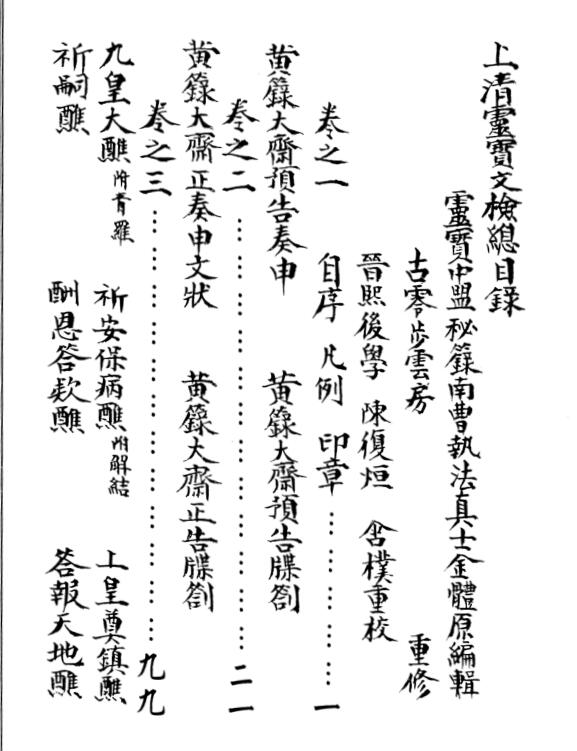 上清靈寶文檢總目錄
靈寶中盟秘籙南曹執法真士金體原編輯
古零步雲房 重修
晉熙後學 陳復烜 含樸重校
自序 凡例 印章
卷之一……………一
黄籙大齋預告奏申 黄籙大齋預告牒劄
卷之二……………二一
黄籙大齋正奏申文狀 黄籙大齋正告牒劄
卷之三……………九九
九皇大醮附青羅 祈安保病醮附解結 上皇奠鎮醮
祈嗣醮 酬恩答欵醮 答報天地醮